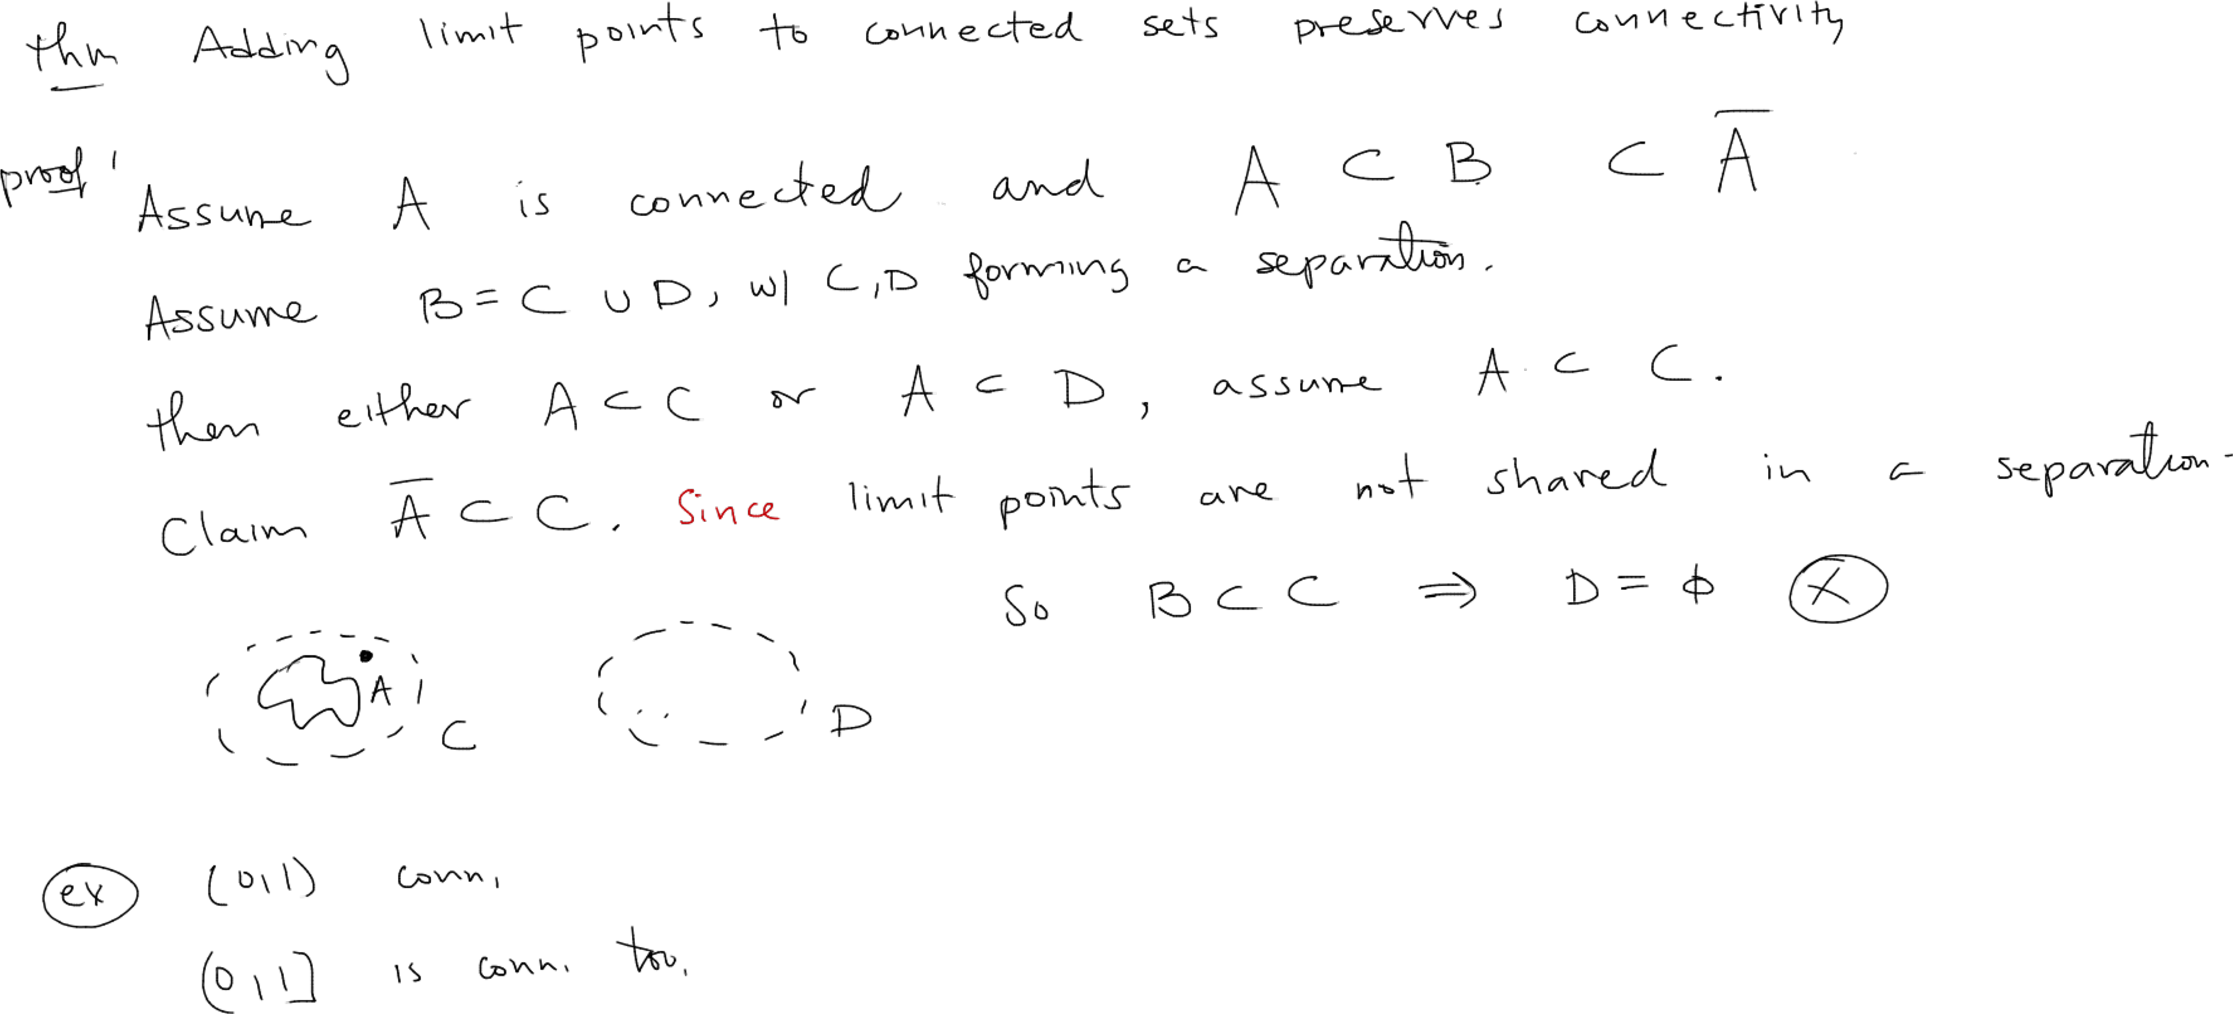 thm Adding limit points to connected sets preserves connectivity
proof' Assume A is connected and A ⊂ B ⊂ A̅
Assume B = C ∪ D, w/ C,D forming a separation.
then either A ⊂ C or A ⊂ D, assume A ⊂ C.
Claim A̅ ⊂ C. Since limit points are not shared in a separation.
So B ⊂ C ⇒ D = ϕ ⊗
A
C
D
ex (0,1) conn.
(0,1] is conn. too.